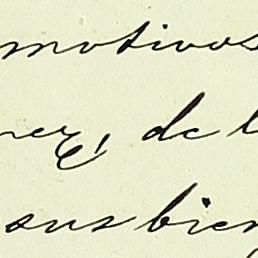 motivos
de l
sus bien